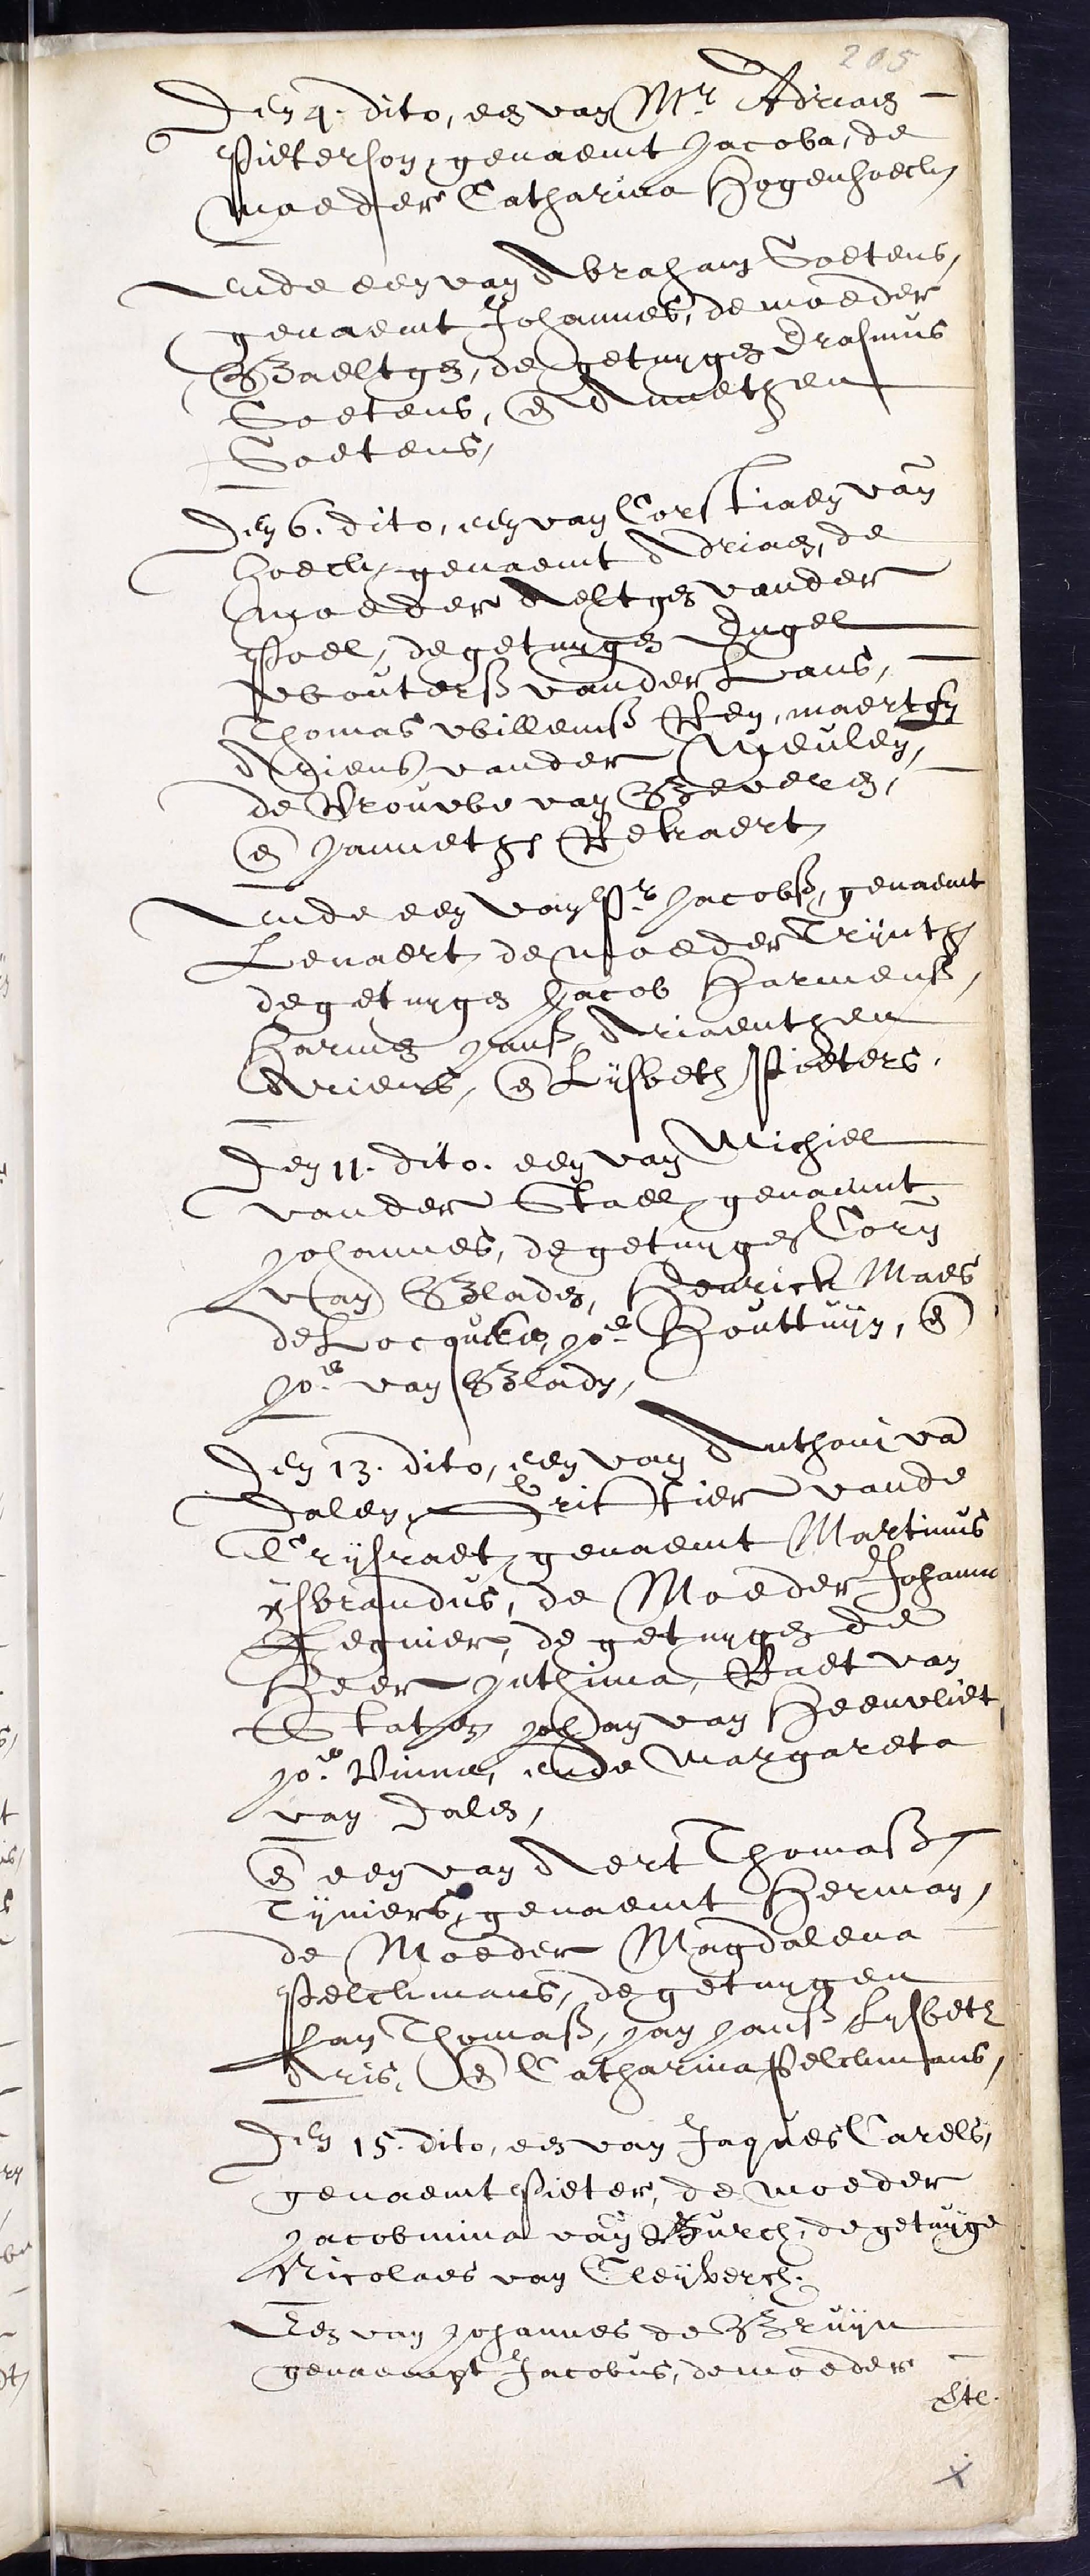 205
Den 4. dito, een van Mr Adriaen
Pieterson, genaemt Jacoba, de
moeder Catharina Hogenhoeck
Ende een van Abraham Goetens,
genaemt Johannes, de moeder
Baeltgen, de getuygen Erasmus
Goetens, en Annethen
Goetens,
Den 6. dito, een van Corstiaen van
hoeck, genaemt Adriaen, de
moeder Aeltgen vander
Poel, de getuygen Engel
Wouterss vander Lans,
Thomas Willemss Key, maertgen
Ariens vander Meulen,
de Vrouwe van Beveren,
en Jannetgen
Ende een van Pr Jacobss, genaemt
Lenaert, de moeder Trijntgen
de getuygen Jacob Harmenss,
Harmen Janss, Ariaenthen
Ariens, en Lijsbeth Pieters.
Den 11. dito. een van Michiel
vander Stael, genaemt
Johannes, de getuygen Corn
van Bladen, Henrick Maes
de Joe Houttuijn, en
Joe van Bladen,
Den 13. dito, een van Anthoni van
Dalen, vande
Crijsraet, genaemt Martinus
ijsbrandus, de Moeder Johanna
Regnier, de getuygen de
Heer Raet van
Staten Johan van Heenvliet,
Joe Vinne, ende Margareta
van Dalen,
en een van Aert Thomass
Tyniers, genaemt Herman,
de Moeder Magdalena
Pelckmans, de getuygen
Jan Thomass, Jan Janss Lysbeth
Aris, en Catharina Pelckmans,
Den 15. dito, een van Jaques Carels,
genaemt Pieter, de moeder
Jacobmina van Burch, de getuyge
Nicolaes van Cleijberch.
Een van Johannes de Bruijn
genaempt Jacobus, de moeder
Etc.
x